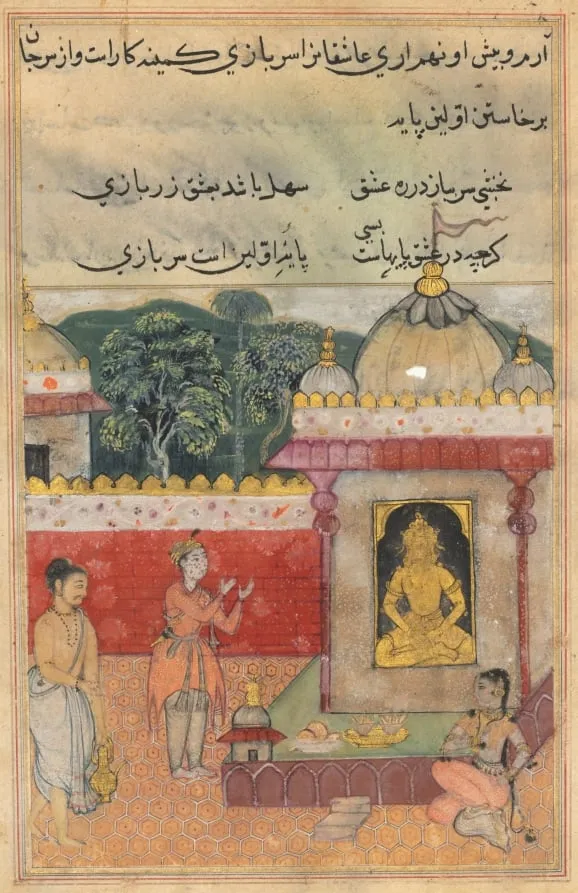 آرم و پیش او نهم اری عاشقانرا سربازی کمینه کاراست و از سر جان
برخاستن اولین پایه
نخشبی سر بباز در ره عشق سهل باشد بعشق زر بازی
گرچه در عشق پایهاست بسی پایهٔ اولین است سربازی